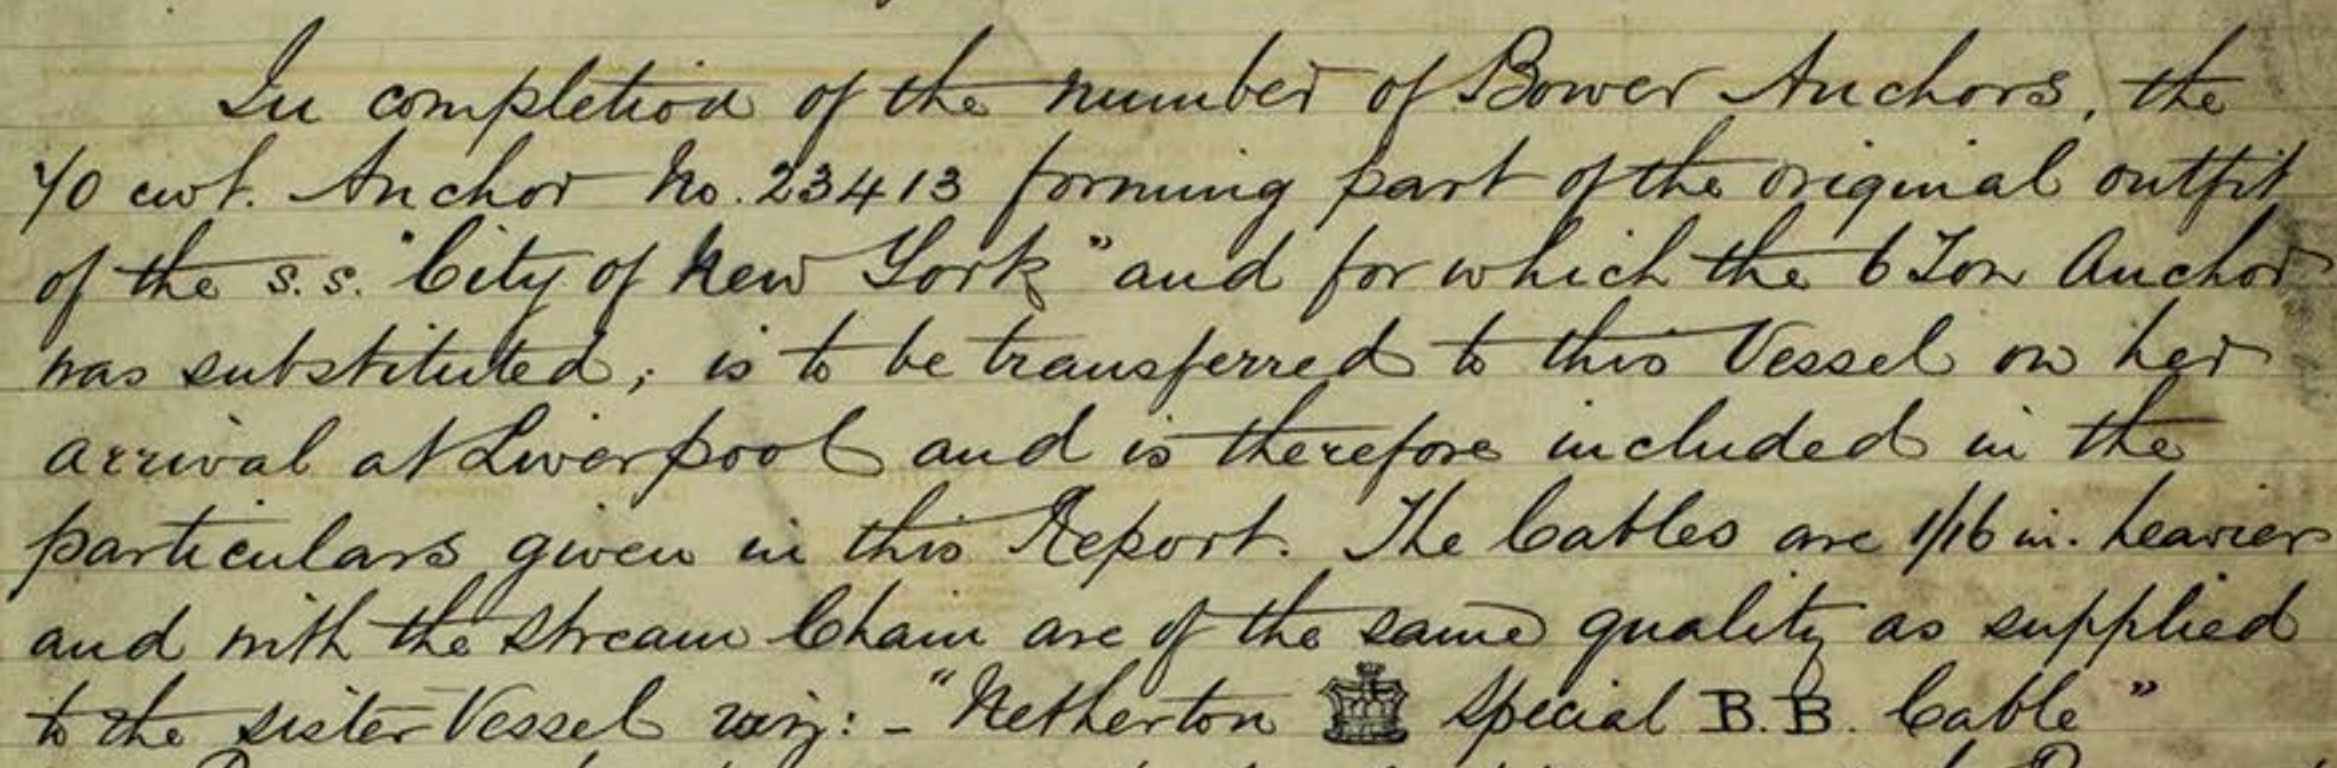 In completion of the number of Bower Anchors, the
70 cwt. Anchor No. 23413 forming part of the original outfit
of the s.s. "City of New York" and for which the 6 Ton Anchor
was substituted; is to be transferred to this Vessel on her
arrival at Liverpool and is therefore included in the
particulars given in this Report. The Cables are 1/16 in. heavier
and with the stream Chain are of the same quality as supplied
to the sister Vessel viz: - "Netherton Special B.B. Cable"